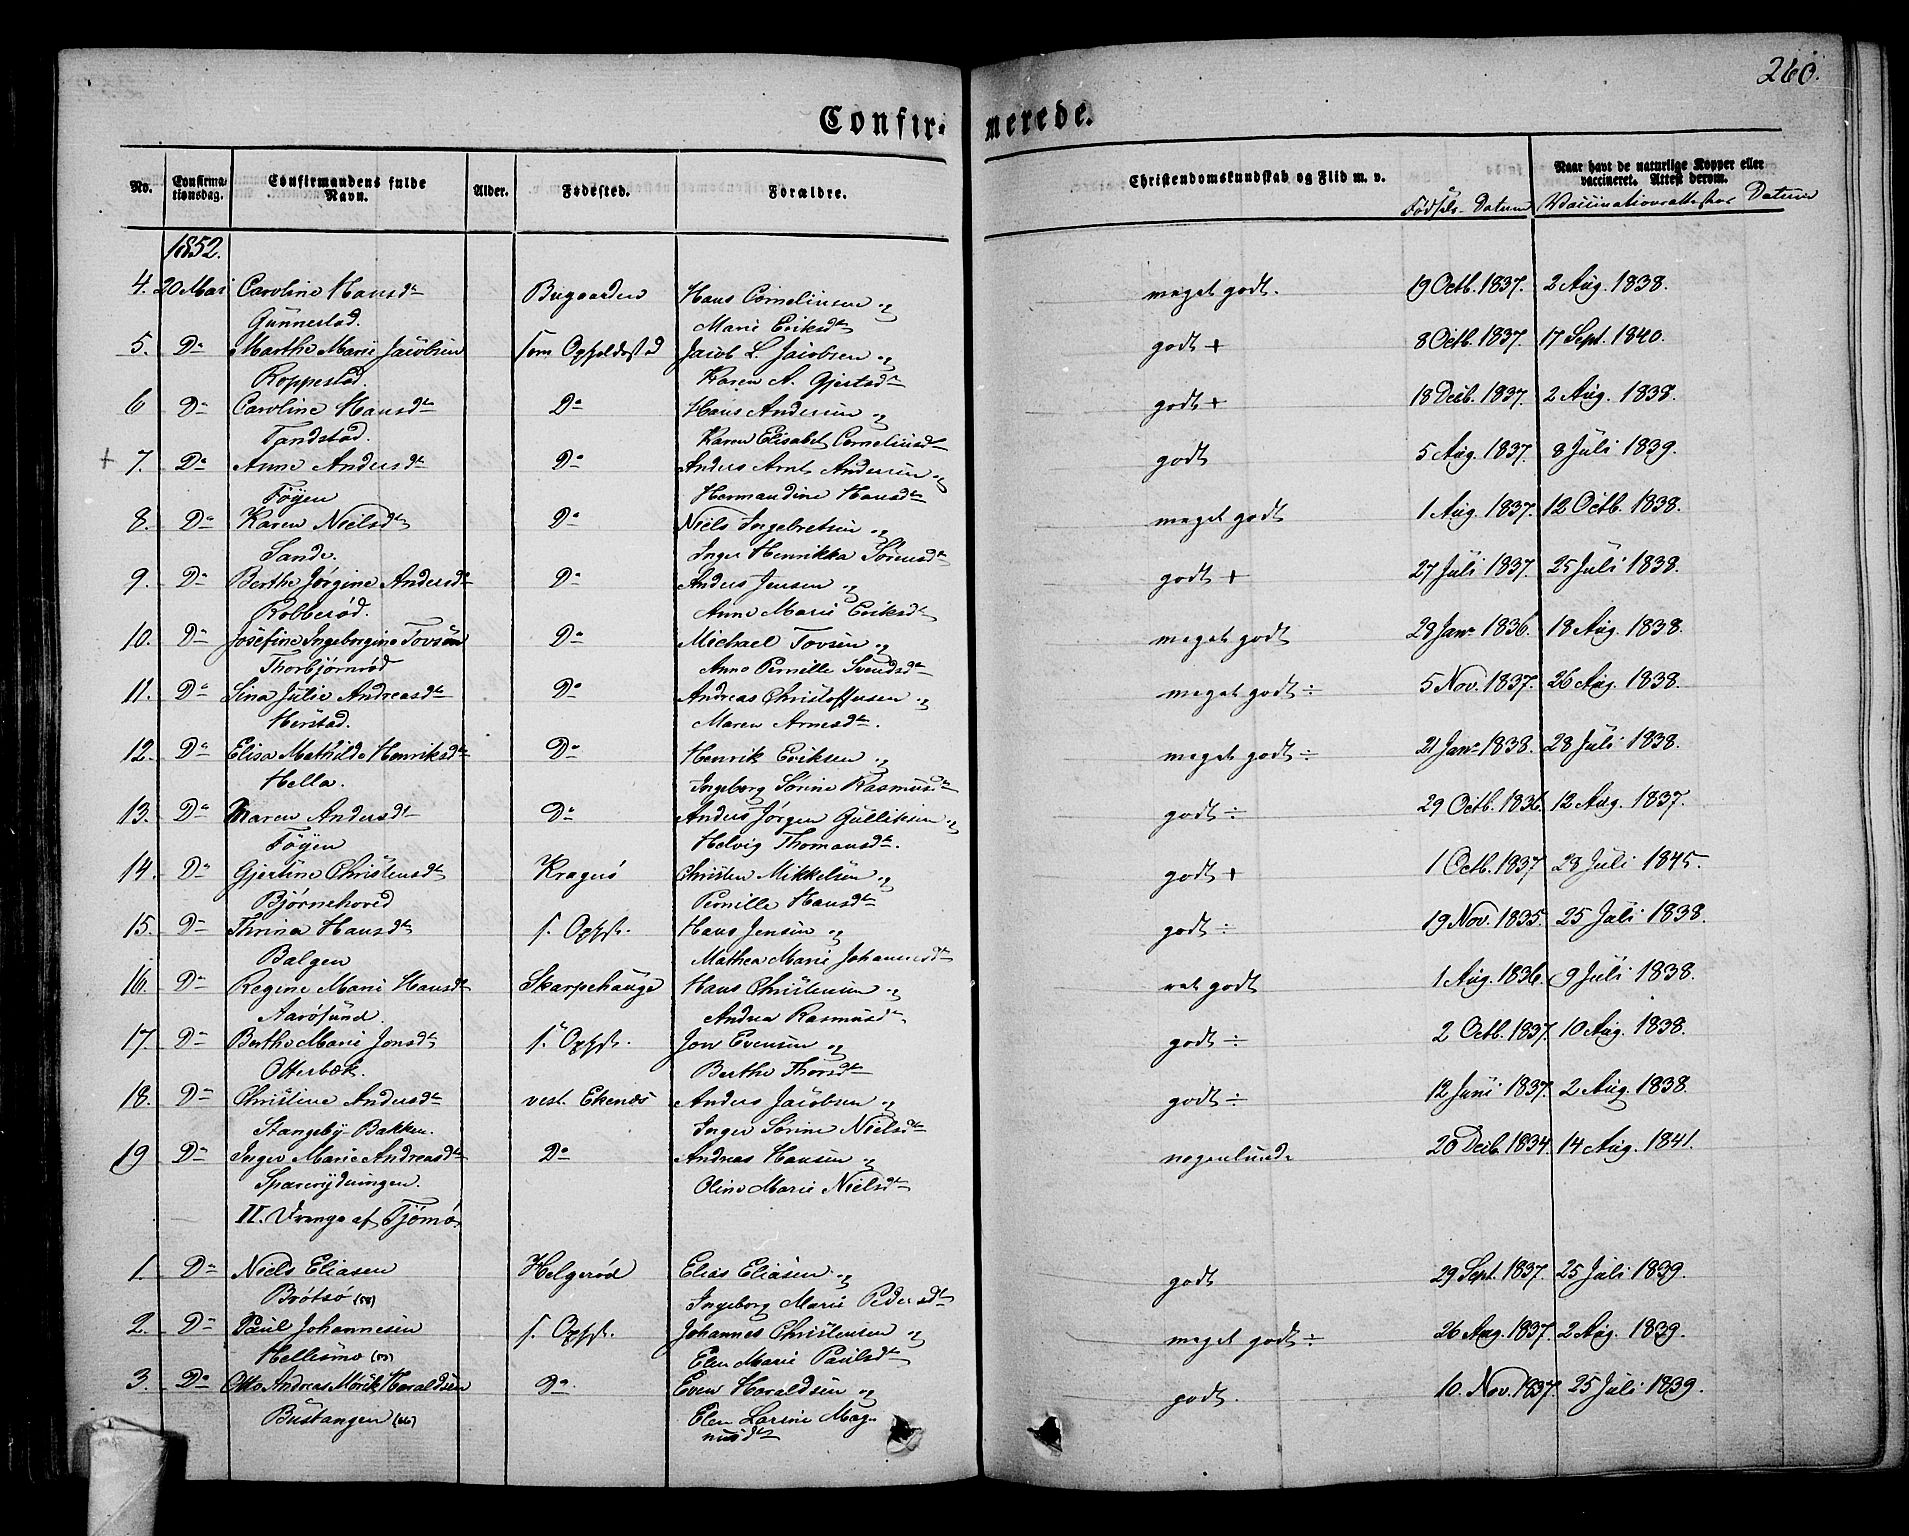 260.
Confirmerede.
No. Confirmationsdag. Confirmandens fulde Navn. Alder. Fødested. Forældre. Christendomskundskab og Flid m. v. Fødsels-Datum Naar havt de naturlige Kopper eller vaccineret. Attest derom. Vaccinationsattestens Datum
1852.
4. 20 Mai Caroline Hansdtr Bugaarden Hans Corneliusen og meget godt. 19 Octb. 1837. 2 Aug. 1838.
Gunnestad. Marie Eriksdtr
5. Do Marthe Marie Jacobsen som Opholdsted Jacob L. Jacobsen og godt + 8 Octb. 1837. 17 Sept. 1840.
Roppestad. Karen A. Gjertsdtr
6 Do Caroline Hansdtr Do Hans Andersen og godt + 18 Decb. 1837. 2 Aug. 1838.
Tandstad. Karen Elisabet Corneliusdtr
+ 7. Do Anne Andersdtr Do Anders Arnt Andersen og godt 5 Aug. 1837. 8 Juli 1839.
Føyen Hermandine Hansdtr
8. Do Karen Nielsdtr Do Niels Ingebretsen og meget godt 1 Aug. 1837. 12 Octb. 1838.
Sande. Inger Henrikka Sørensdtr
9. Do Berthe Jørgine Andersdtr Do Anders Jensen og godt + 27 Juli 1837. 25 Juli 1838.
Robberød. Anne Marie Eriksdtr
10. Do Josefine Ingeborgine Tovsen Do Michael Tovsen og meget godt 28 Janr 1836. 18 Aug. 1838.
Thorbjørnrød Anne Pernille Svendsdtr
11. Do Sina Julie Andreasdtr Do Andreas Christoffersen og meget godt ÷ 5 Nov. 1837. 26 Aug. 1838.
Herstad. Maren Arnesdtr.
12. Do Elisa Mathilde Henriksdtr Do Henrik Eriksen og meget godt ÷ 21 Janr 1838. 28 Juli 1838.
Hella. Ingeborg Sørine Rasmusdtr
13. Do Maren Andersdtr Do Anders Jørgen Gulliksen og godt ÷ 29 Octb. 1836. 12 Aug. 1837.
Føyen Helvig Thomasdtr.
14. Do Gjertine Christensdtr Kragerø Christen Mikkelsen og godt + 1 Octb. 1837 28 Juli 1845.
Bjørnehoved Pernille Hansdtr
15. Do Thrina Hansdtr s. Opht. Hans Jensen og godt ÷ 19 Nov. 1835. 25 Juli 1838.
Bolgen Mathea Marie Johannesdtr
16. Do Regine Marie Hansdtr Skarpehauge Hans Christensen og ret godt 1 Aug. 1836. 9 Juli 1838.
Aarøsund. Andrea Rasmusdtr
17. Do Berthe Marie Jonsdtr s. Opht. Jon Evensen og godt ÷ 2 Octb. 1837. 10 Aug. 1838.
Otterbæk. Berthe Thorsdtr
18. Do Christine Andersdtr vest. Ekenes Anders Jacobsen og godt ÷ 12 Juni 1837. 2 Aug. 1838.
Stangeby-Bakken. Inger Sørine Nielsdtr
19 Do Inger Marie Andreasdtr Do Andreas Hansen og nogenlunde 20 Decb. 1834. 14 Aug. 1841.
Sparerydningen. Oline Marie Nielsdtr
II. Drenge af Tjømø.
1. Do Niels Eliasen Helgerød Elias Eliasen og godt 29 Sept. 1837. 25 Juli 1839.
Brøtsø Ingeborg Marie Pedersdtr
2. Do Paul Johannesen s. Opht. Johannes Christensen og meget godt ÷ 26 Aug. 1837. 2 Aug. 1839.
Hellesmo Elen Marie Paulsdtr
3. Do Otto Andreas Mørik Haraldsen Do. Even Haraldsen og godt. 10. Nov. 1837. 25 Juli 1839.
Bustangen (66) Elen Larine Mag-
nusdtr